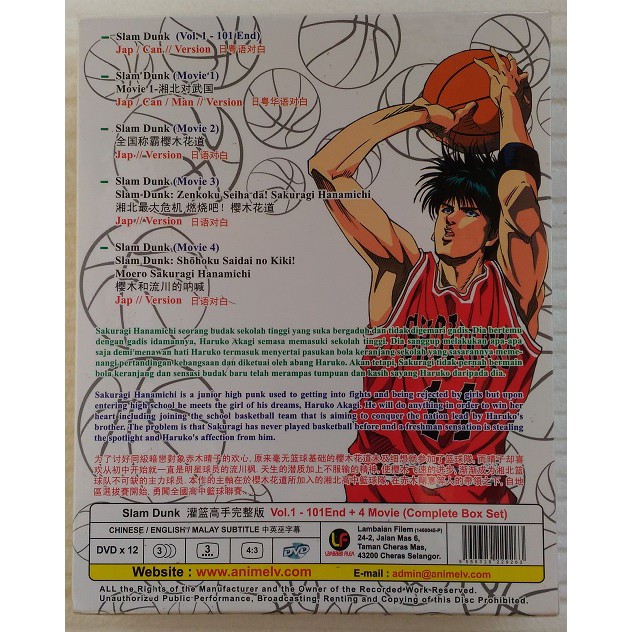 Slam Dunk (Vol. 1 - 101 End)
Jap / Can // Version 日粤语对白
Slam Dunk (Movie 1)
Movie 1-湘北对武国
Jap / Can / Man // Version 日粤华语对白
Slam Dunk (Movie 2)
全国称霸樱木花道
Jap // Version 日语对白
Slam Dunk (Movie 3)
Slam Dunk: Zenkoku Seiha da! Sakuragi Hanamichi
湘北最大危机 燃烧吧! 樱木花道
Jap // Version 日语对白
Slam Dunk (Movie 4)
Slam Dunk: Shōhoku Saidai no Kiki!
Moero Sakuragi Hanamichi
樱木和流川的呐喊
Jap // Version 日语对白
Sakuragi Hanamichi seorang budak sekolah tinggi yang suka bergaduh dan tidak digemari gadis. Dia bertemu
dengan gadis idamannya, Haruko Akagi semasa memasuki sekolah tinggi. Dia sanggup melakukan apa-apa
saja demi menawan hati Haruko termasuk menyertai pasukan bola keranjang sekolah yang sasarannya meme-
nangi pertandingan kebangsaan dan diketuai oleh abang Haruko. Akan tetapi, Sakuragi tidak pernah bermain
bola keranjang dan sensasi budak baru telah merampas tumpuan dan kasih sayang Haruko daripada dia.
Sakuragi Hanamichi is a junior high punk used to getting into fights and being rejected by girls but upon
entering high school he meets the girl of his dreams, Haruko Akagi. He will do anything in order to win her
heart including joining the school basketball team that is aiming to conquer the nation lead by Haruko's
brother. The problem is that Sakuragi has never played basketball before and a freshman sensation is stealing
the spotlight and Haruko's affection from him.
为了讨好同級暗戀對象赤木晴子的欢心, 原来毫无篮球基础的樱木花道
欢从初中开始就一直是明星球员的流川枫. 天生的潜质加上不服输的精神,
球队不可缺的主力球员. 本作的主軸在於樱木花道所加入的湘北高中籃球隊,
區選拔賽開始, 勇闖全國高中籃球聯賽.
Slam Dunk 灌篮高手完整版 Vol.1 - 101End + 4 Movie (Complete Box Set)
CHINESE / ENGLISH / MALAY SUBTITLE 中英巫字幕
DVD x 12 3 3 4:3 DVD
LF LAMBAIAN FILEM
Lambaian Filem (1460045-P)
24-2, Jalan Mas 6,
Taman Cheras Mas,
43200 Cheras Selangor.
Website : www.animelv.com E-mail : admin@animelv.com
ALL the Rights of the Manufacturer and the Owner of the Recorded Work Reserved.
Unauthorized Public Performance, Broadcasting, Renting and Copying of this Disc Prohibited.